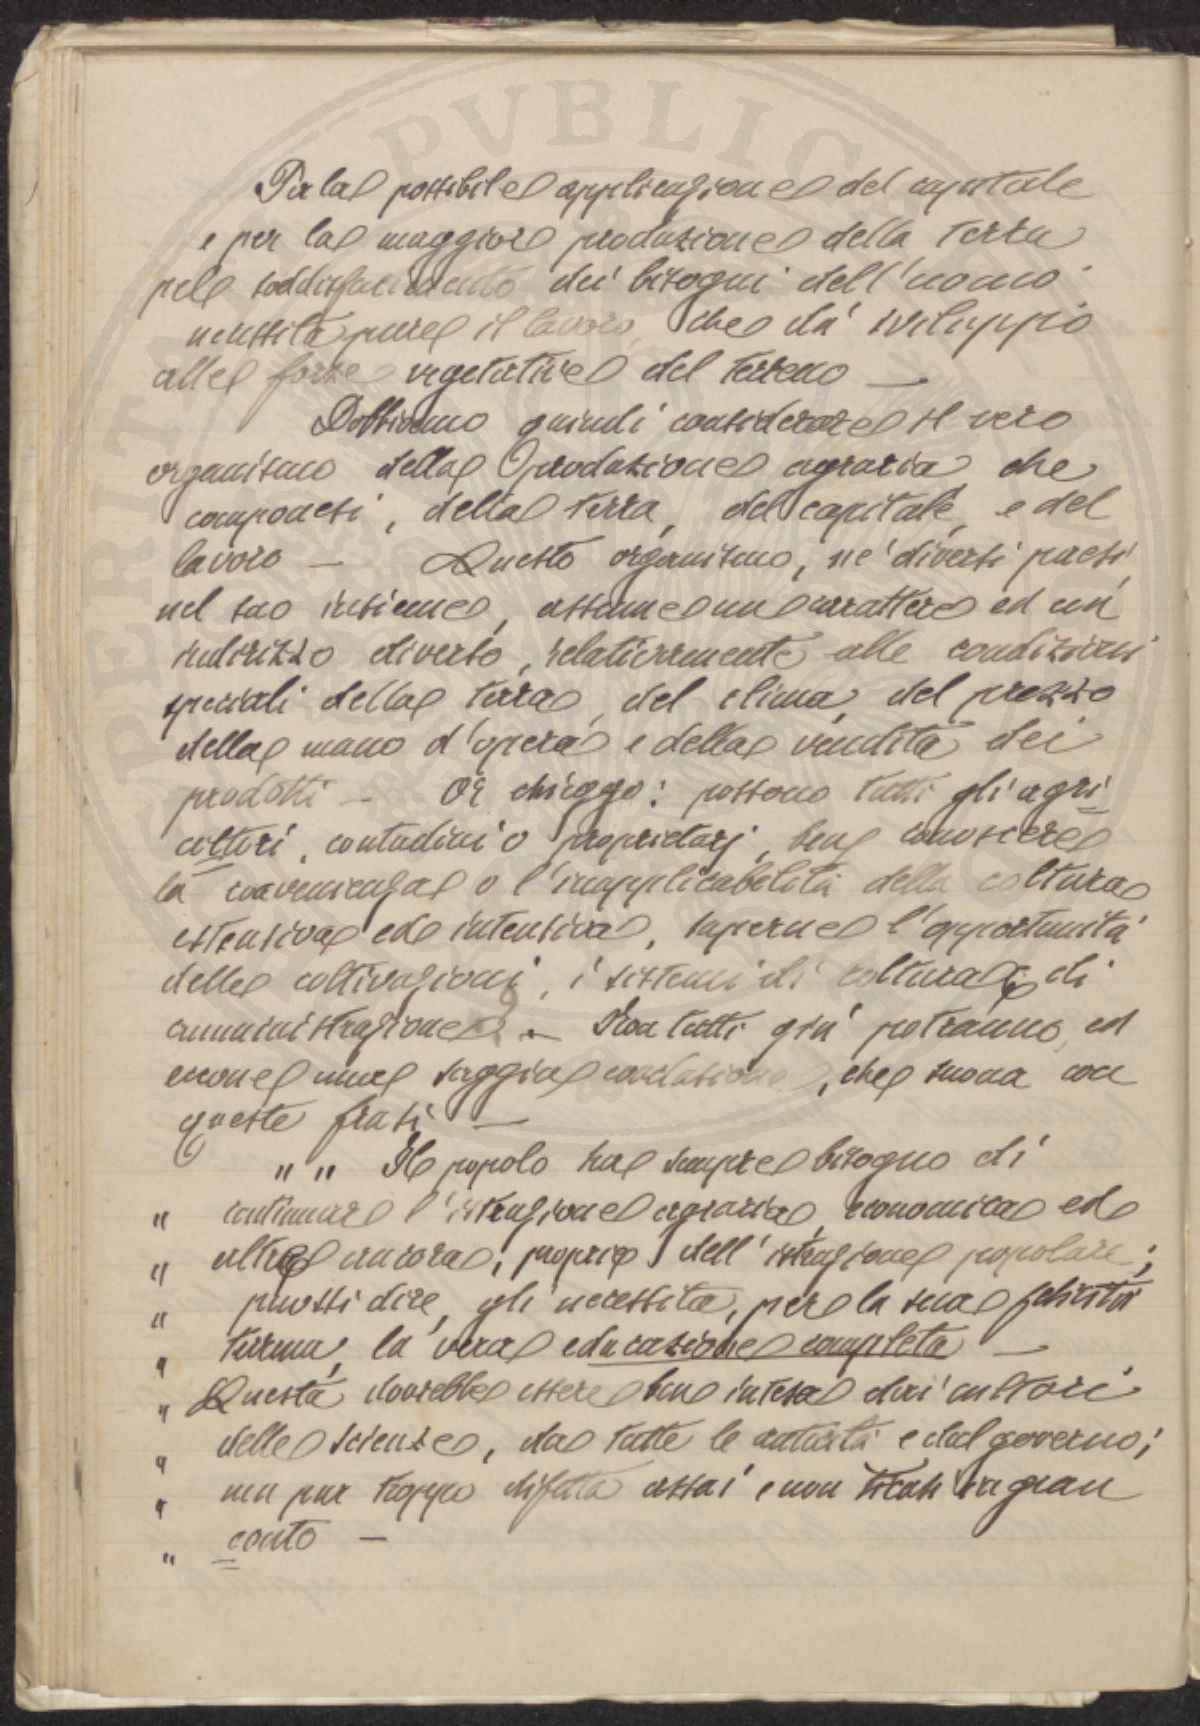 Per la possibile applicazione del capitale
e per la maggiore produzione della terra
pel soddisfacimento dei bisogni dell'uomo
necessita pure il lavoro, che dà sviluppo
alle forze vegetative del terreno —
Dobbiamo quindi considerare il vero
organismo della produzione agraria che
componesi, della terra, del capitale, e del
lavoro — Questo organismo, ne' diversi paesi,
nel suo insieme, assume un carattere ed un
indirizzo diverso, relativamente alle condizioni
speciali della terra, del clima, del prezzo
della mano d'opera e della vendita dei
prodotti — Or chieggo: possono tutti gli agri
coltori, contadini o proprietarj, ben conoscere
la convenienza o l'inapplicabilità della coltura
estensiva ed intensiva, saperne l'opportunità
delle coltivazioni, i sistemi di coltura e di
amministrazione? — Non tutti già potranno, ed
eccone una saggia conclusione, che suona con
queste frasi —
" " Il popolo ha sempre bisogno di
" continuare l'istruzione agraria, economica ed
" altra ancora, propria dell'istruzione popolare;
" puossi dire, gli necessita, per la sua
" la vera educazione completa —
" Questa dovrebbe essere ben intesa dai cultori
" delle scienze, da tutte le autorità e dal governo;
" ma pur troppo difetta assai e non tiensi in gran
" conto —
PERITA PVBLICE